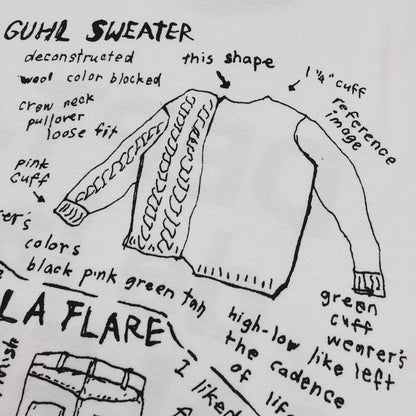 GUHL SWEATER
deconstructed
wool color blocked
crew neck
pullover
loose fit
this shape
1 ¼" cuff
reference
image
pink
cuff
colors
black pink green tan
green
cuff
wearer's
left
high-low like
the cadence
of
LA FLARE
I liked